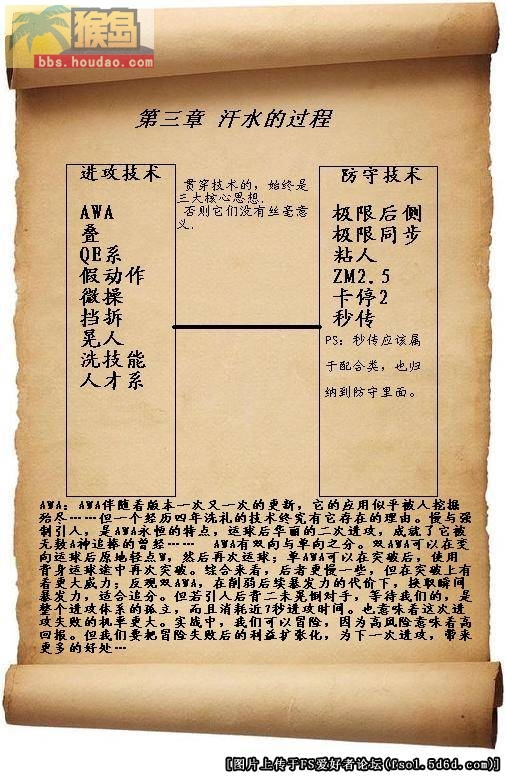 猴岛
bbs.houdao.com
第三章 汗水的过程
进攻技术
AWA
叠
QE系
假动作
微操
挡拆
晃人
洗技能
人才系
贯穿技术的，始终是
三大核心思想.
否则它们没有丝毫意
义.
防守技术
极限后侧
极限同步
粘人
ZM2.5
卡停2
秒传
PS：秒传应该属
于配合类，也归
纳到防守里面。
AWA：AWA伴随着版本一次又一次的更新，它的应用似乎被人挖掘
殆尽……但一个经历四年洗礼的技术终究有它存在的理由。慢与强
制引人，是AWA永恒的特点，运球后华丽的二次进攻，成就了它被
无数A神追捧的曾经…… AWA有双向与单向之分。双AWA可以在变
向运球后原地轻点W，然后再次运球；单AWA可以在突破后，使用
背身运球途中再次突破。综合来看，后者更慢一些，但在突破上有
着更大威力；反观双AWA，在削弱后续暴发力的代价下，换取瞬间
暴发力，适合追分。但若引人后背二未晃倒对手，等待我们的，是
整个进攻体系的孤立，而且消耗近7秒进攻时间。也意味着这次进
攻失败的机率更大。实战中，我们可以冒险，因为高风险意味着高
回报。但我们要把冒险失败后的利益扩张化，为下一次进攻，带来
更多的好处…
[图片上传于FS爱好者论坛(fsol.5d6d.com)]